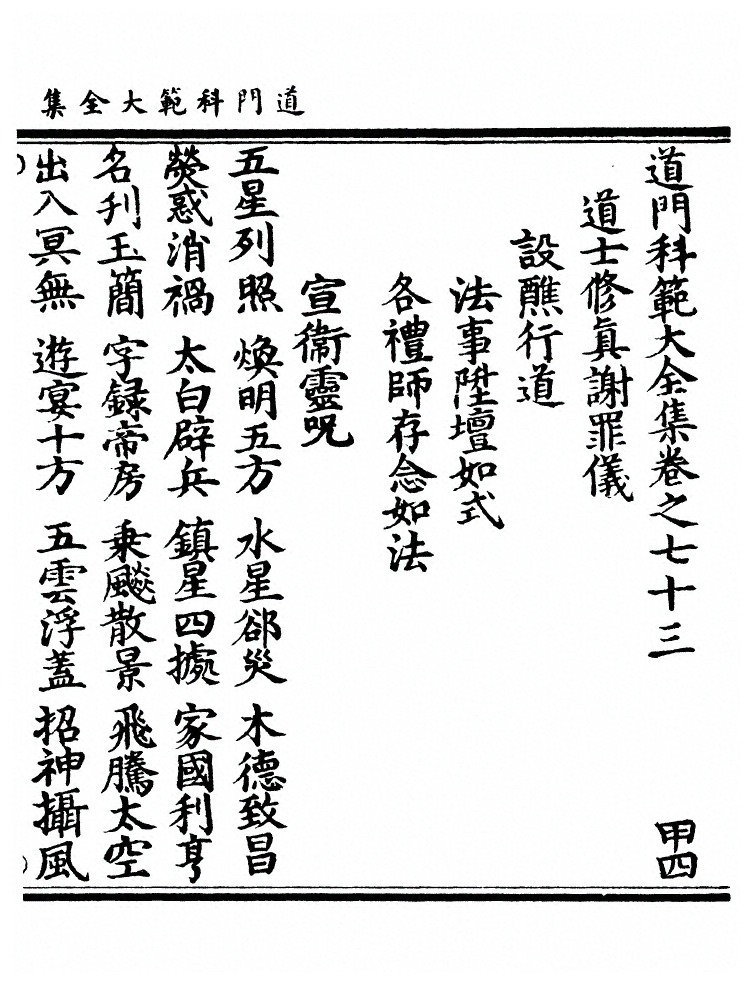 道門科範大全集
道門科範大全集卷之七十三 甲四
道士修眞謝罪儀
設醮行道
法事陞壇如式
各禮師存念如法
宣衞靈呪
五星列照 煥明五方 水星郤災 木德致昌
熒惑消禍 太白辟兵 鎮星四據 家國利亨
名刋玉簡 字録帝房 乗飈散景 飛騰太空
出入冥無 遊宴十方 五雲浮蓋 招神攝風